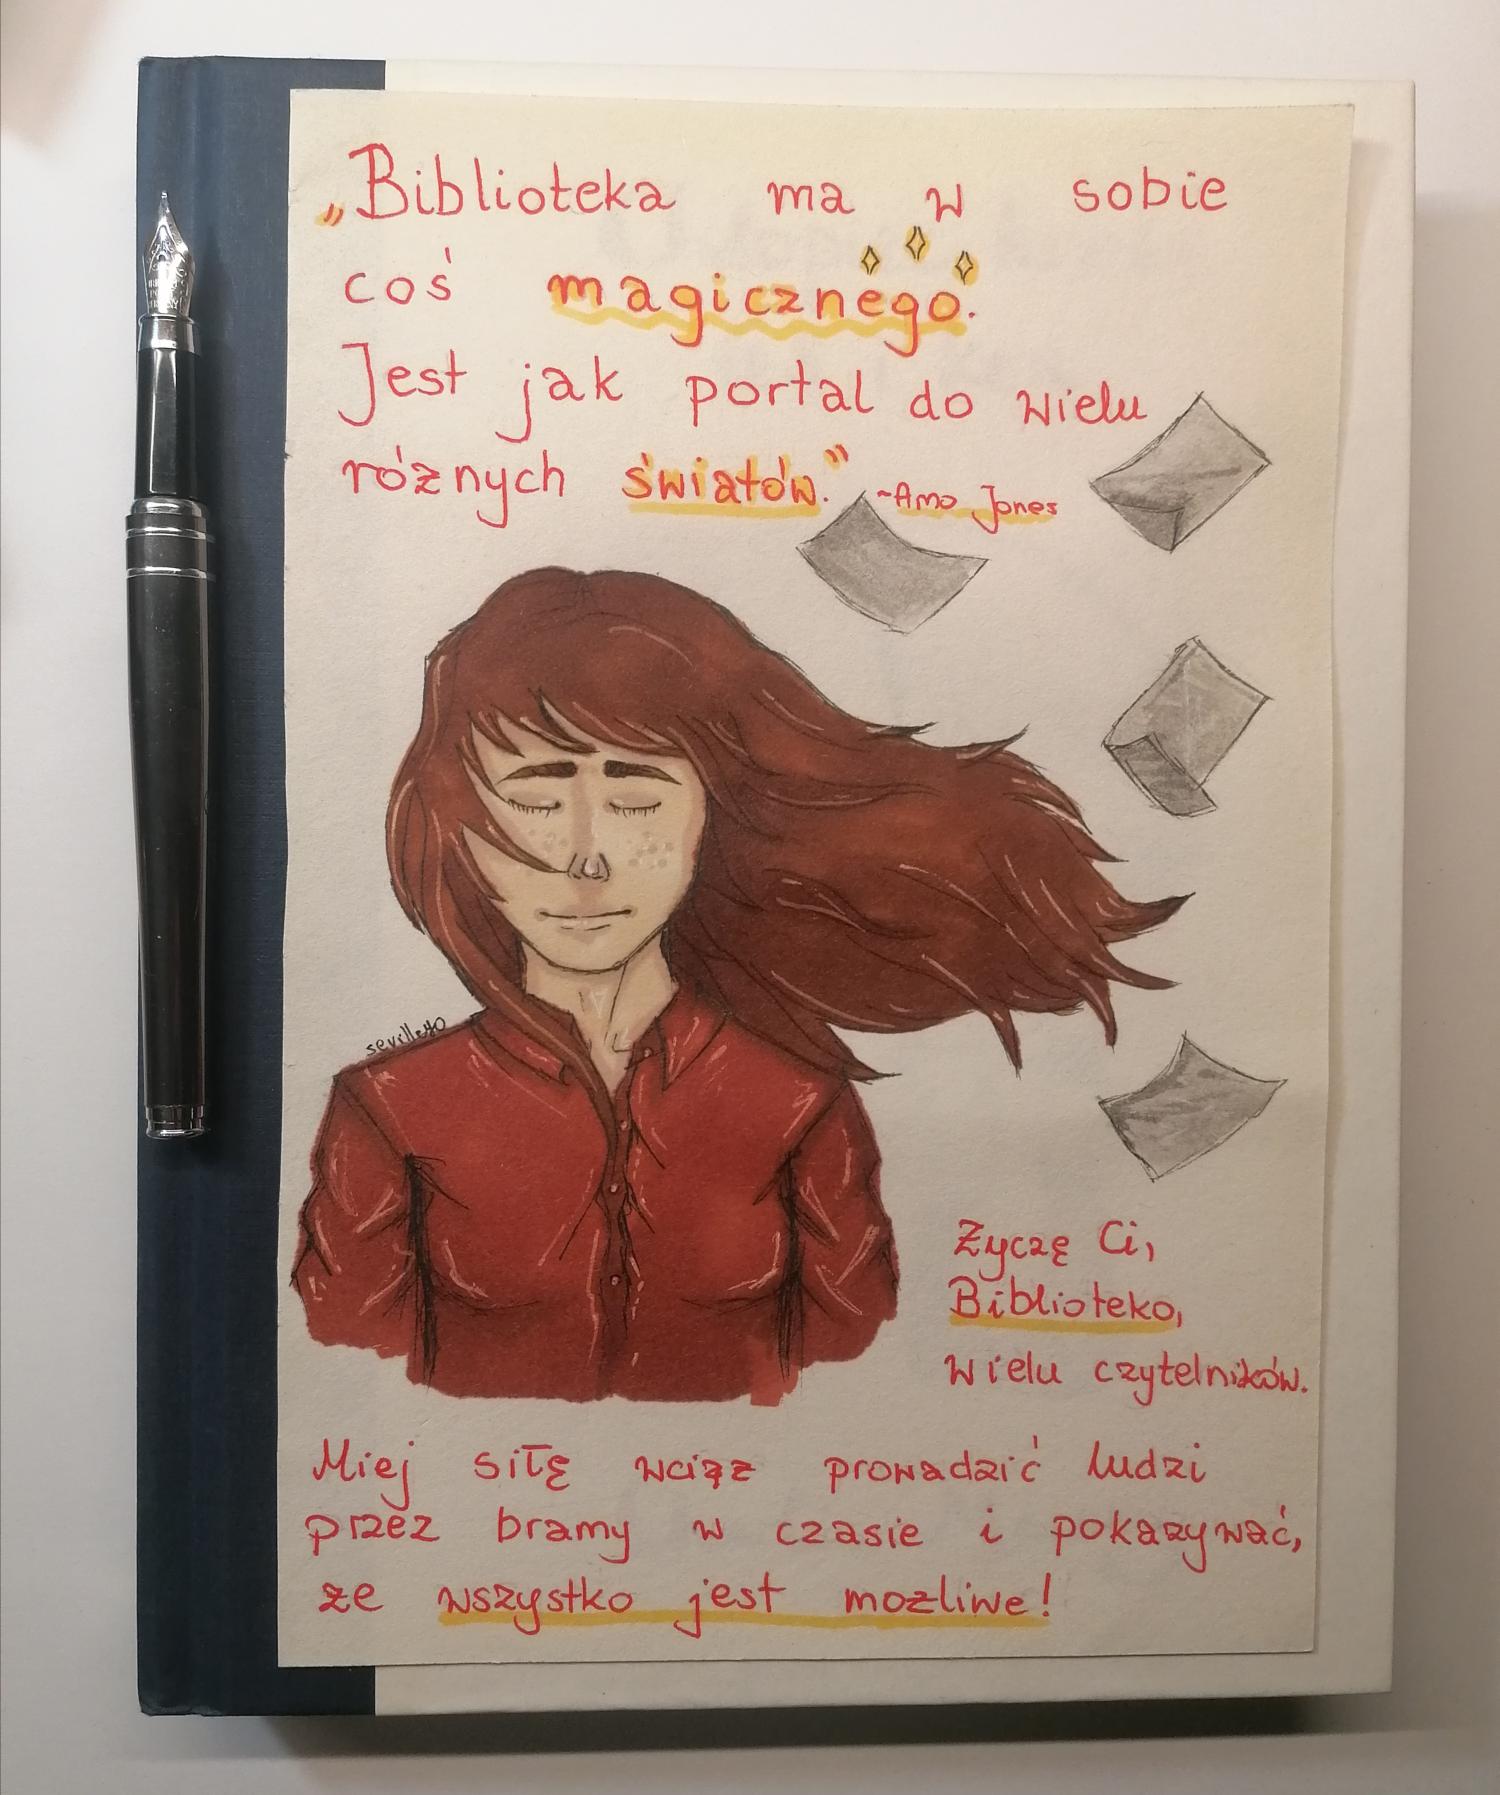 „Biblioteka ma w sobie
coś magicznego.
Jest jak portal do wielu
różnych światów." ~Amo Jones
Życzę Ci,
Biblioteko,
wielu czytelników.
Miej siłę wciąż prowadzić ludzi
przez bramy w czasie i pokazywać,
że wszystko jest możliwe!